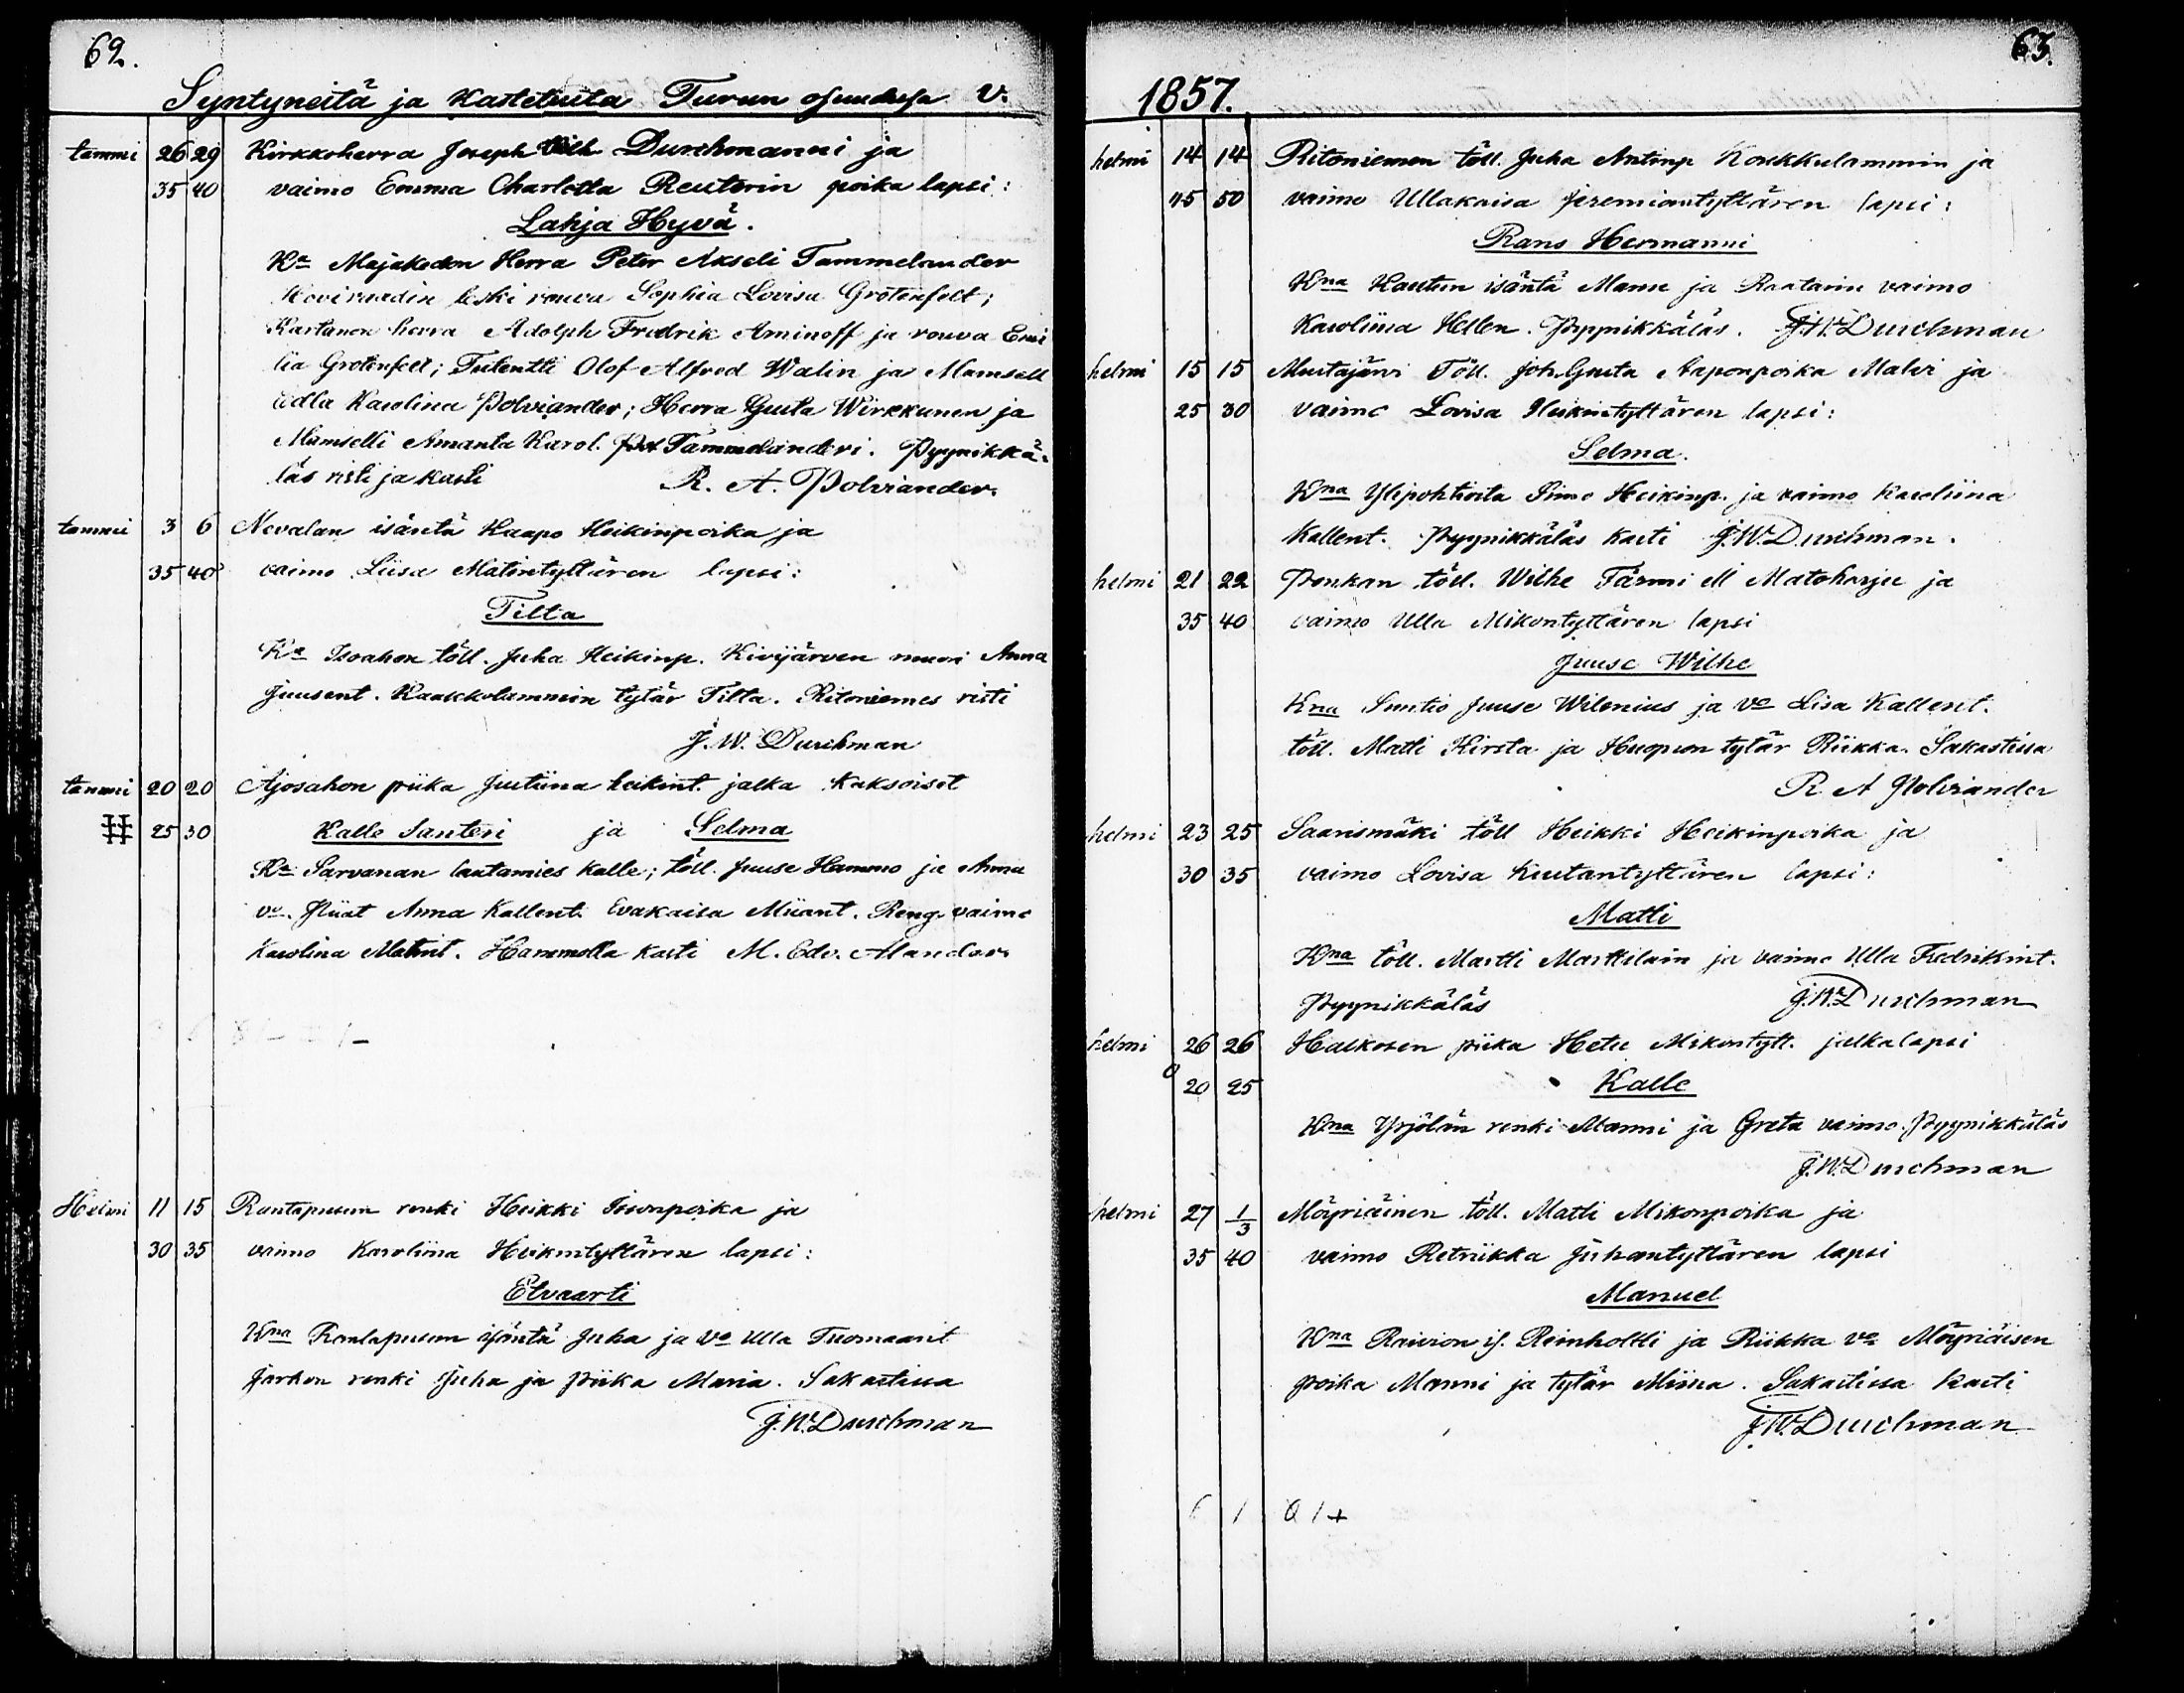 62.
Syntyneitä ja Kastetuita Turun osuudessa v.
tammi 26 29 Kirkkoherra Joseph Wilh Durchmanni ja
35 40 vaimo Emma Charlotta Reuterin poika lapsi:
Lahja Hyvä.
Kª Majakedon Herra Peter Akseli Tammelander
leski rouva Sophia Lovisa Grotenfelt;
Kartanon herra Adolph Fredrik Aminoff ja rouva Emi
lia Grotenfelt; Olof Alfred Walin ja Mamsell
Adla Karolina Polviander; Herra Gusta Wirkkunen ja
Mamselli Amanta Karol. Tammelanderi. Pyynikkä-
läs risti ja kasti R. A. Polviander.
tammi 3 6 Nevalan isäntä Kaapo Heikinpoika ja
35 40 vaimo Liisa Matintyttären lapsi:
Tilta
Kª Isoahon töll. Juha Heikinp. Kivijärven muori Anna
Juusent. Kaakkolammin tytär Tilta. Ritoniemes risti
J. W. Durchman
tammi 20 20 Ajosahon piika Justiina heikint. jalka Kaksoiset
25 30 Kalle Santeri ja Selma
Kª Sarvanan lautamies Kalle; töll. Juuse Hammo ja Anna
vo. Piiat Anna Kallent. Evakaisa Miiant. Reng. vaimo
Karolina Matint. Hammolla kasti M. Edv. Alander.
Helmi 11 15 Rantapusun renki Heikki Iisonpoika ja
30 35 vaimo Karoliina Heikintyttären lapsi:
Etvaarti
Kna Rantapusun isäntä Juha ja vo Ulla Tuomaant
Jarhon renki Juha ja piika Maria. Sakastissa
J. W. Durchman
63.
1857.
helmi 14 14 Ritoniemen töll. Juha Antinp Koukkulammin ja
45 50 vaimo Ullakaisa Jeremiantyttären lapsi:
Rans Hermanni
Kna Kautun isäntä Mannu ja Raatarin vaimo
Karoliina Hellen. Pyynikkäläs. J. W. Durchman
helmi 15 15 Mustajärvi Töll. Joh. Gusta Aaponpoika Malvi ja
25 30 vaimo Lovisa Heikintyttären lapsi:
Selma.
Kna Ylipohtiolta Simo Heikinp. ja vaimo Karoliina
Kallent. Pyynikkäläs kasti J. W. Durchman.
helmi 21 22 Ponkan töll. Wilhe Färmi ell Matoharju ja
35 40 vaimo Ulla Mikontyttären lapsi
Juuse Wilhe
Kna Suntio Juuse Wilenius ja vo Lisa Kallent.
töll. Matti Hirsta ja Huopion tytär Riikka. Sakastissa
R A Polviander
helmi 23 25 Saarismäki töll Heikki Heikinpoika ja
30 35 vaimo Lovisa Kustantyttären lapsi:
Matti
Kna töll. Martti Marttilain ja vaimo Ulla Fredrikint.
Pyynikkäläs J. W. Durchman
helmi 26 26 Halkosen piika Hetu Mikontytt. jalkalapsi
20 25 Kalle
Kna Yrjölän renki Manni ja Greta vaimo. Pyynikkäläs
J. W. Durchman
helmi 27 1/3 Möyriäinen töll. Matti Mikonpoika ja
35 40 vaimo Retriikka Juhantyttären lapsi
Manuel
Kna Raivion is. Reinholtti ja Riikka vo Möyriäisen
poika Manni ja tytär Miina. Sakastissa kasti
J. W. Durchman
6 1 0 1 +